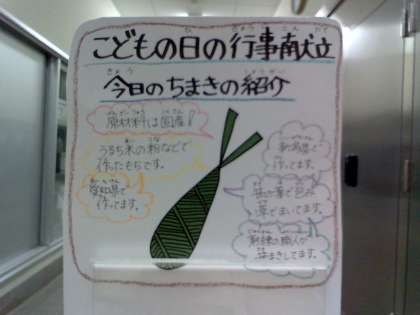 こどもの日の行事献立
今日のちまきの紹介
原材料は国産!
うるち米の粉などで
作ったもちです。
愛知県で
作ってます。
新潟県で
作ってます。
笹の葉で包み
草でまいてます。
熟練の職人が
手まきしてます。